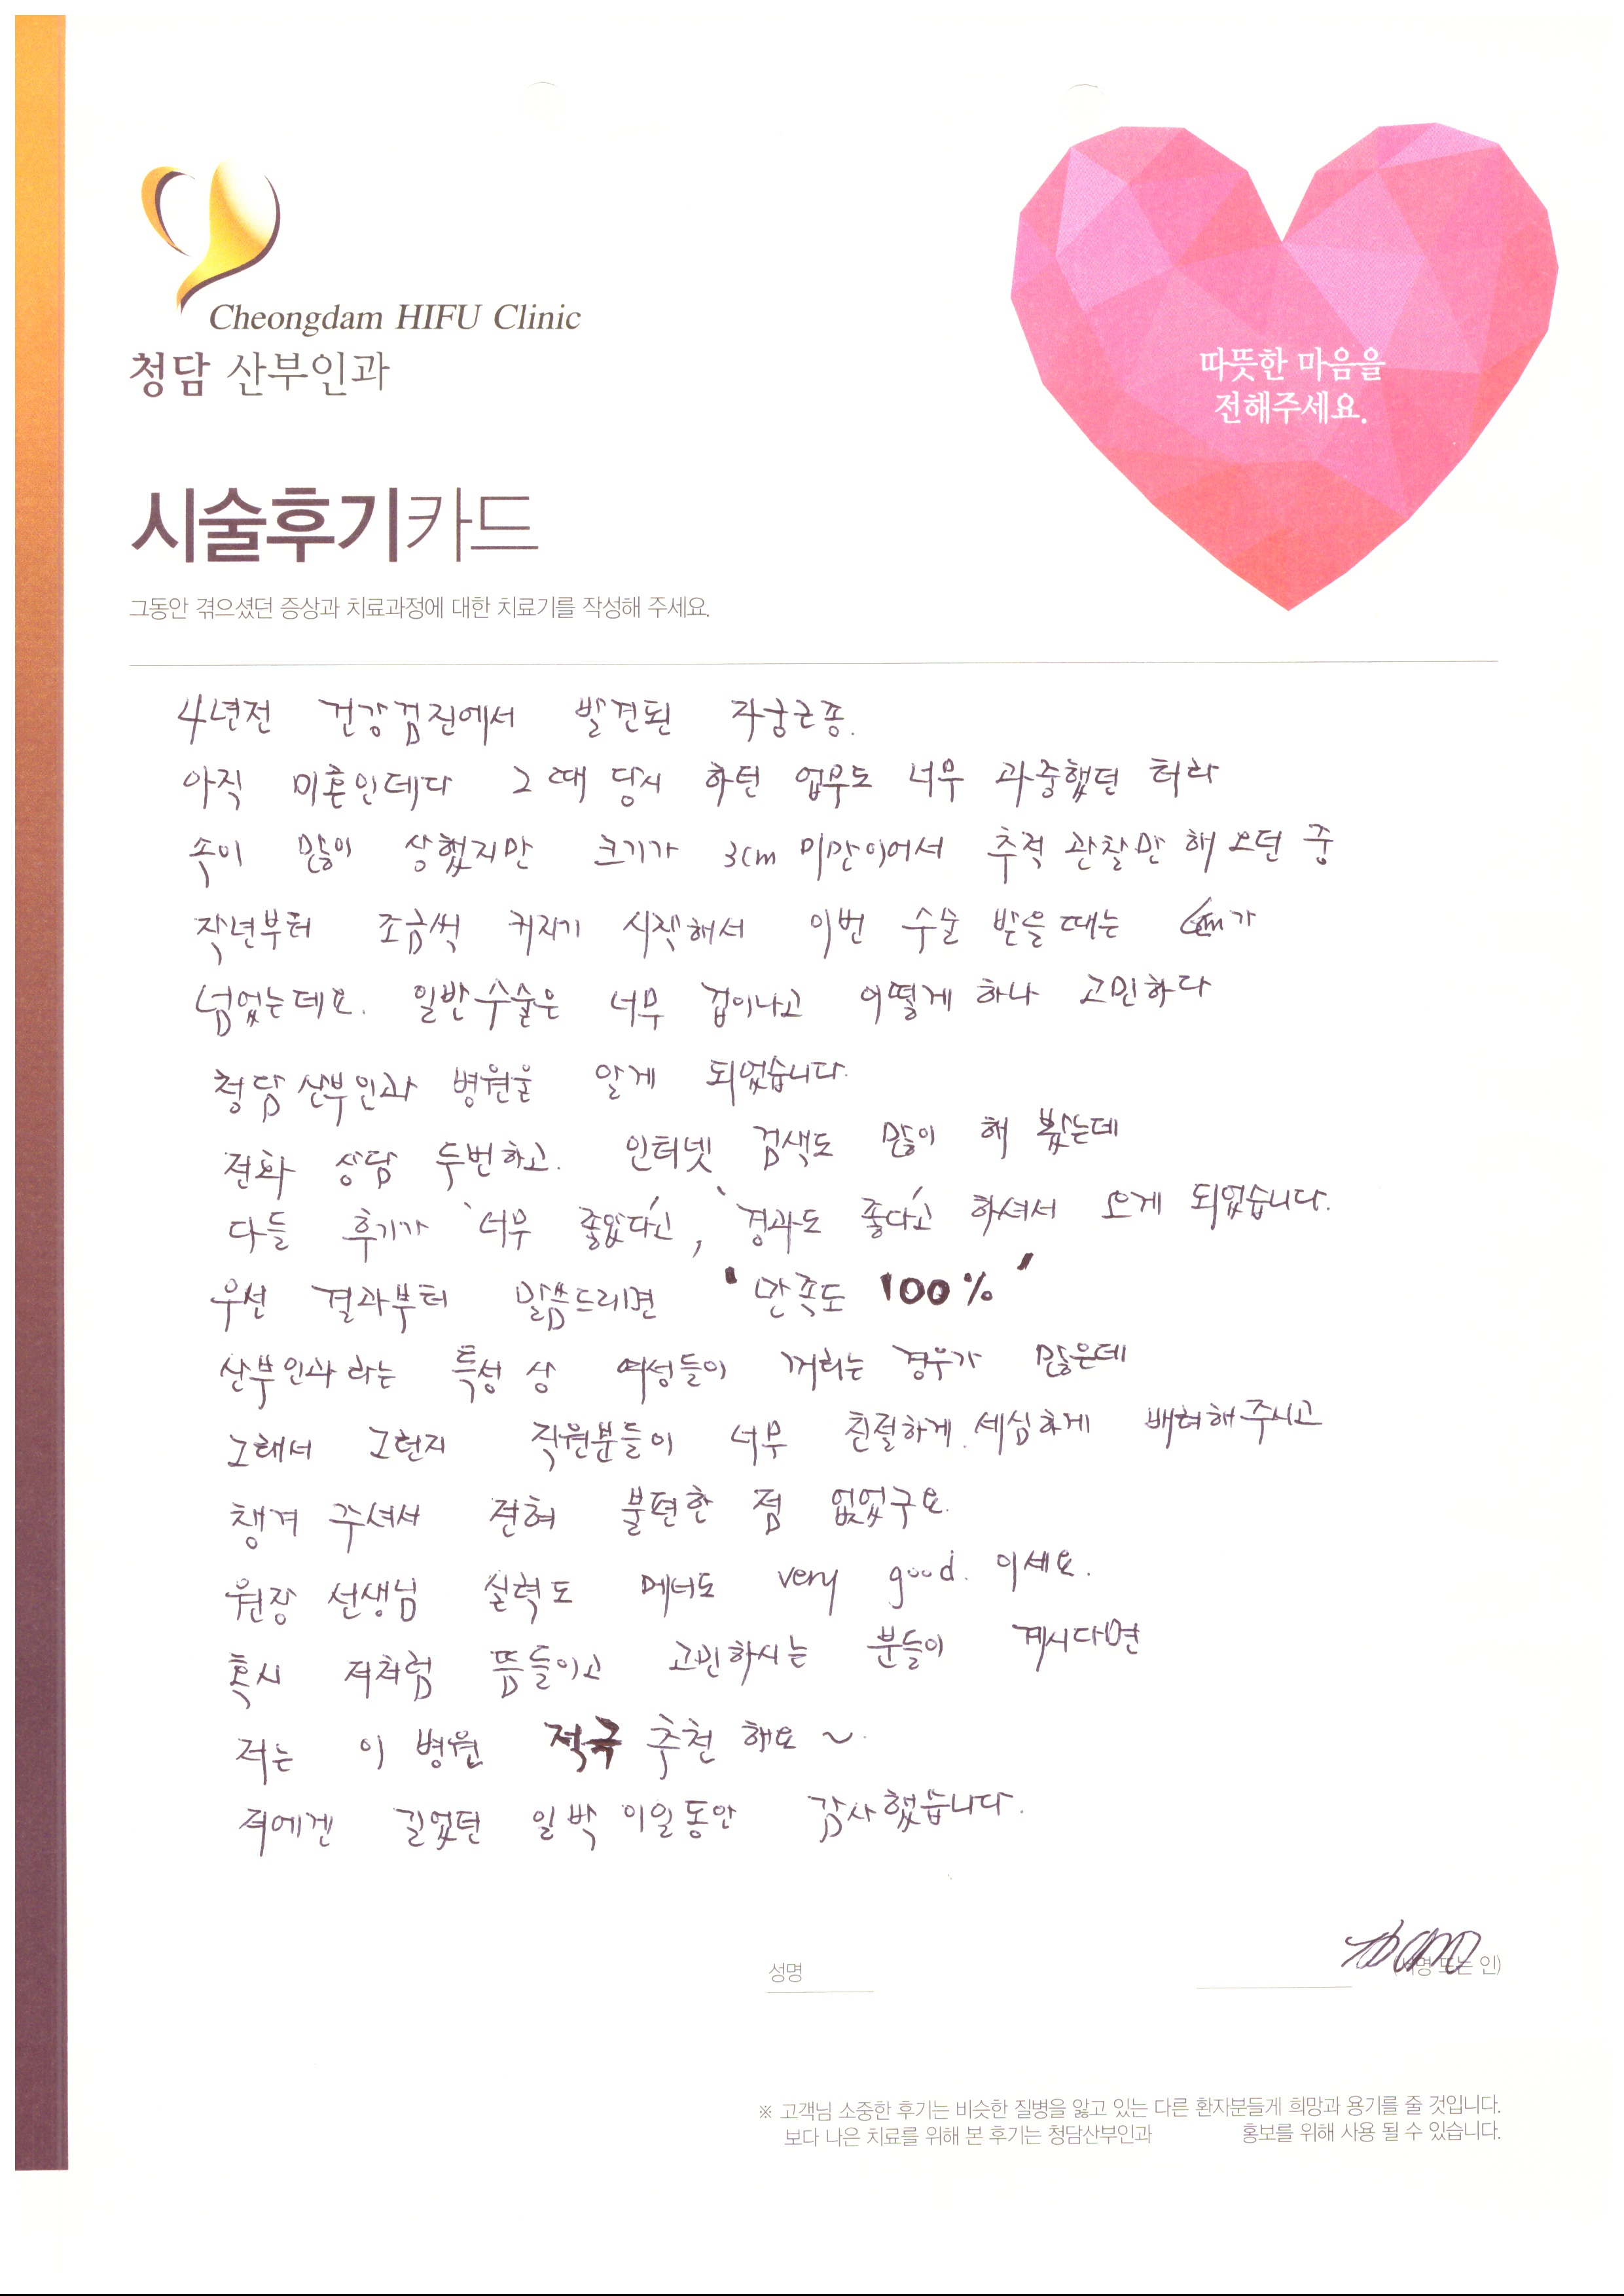 Cheongdam HIFU Clinic
청담 산부인과
따뜻한 마음을
전해주세요.
시술후기카드
그동안 겪으셨던 증상과 치료과정에 대한 치료기를 작성해 주세요.
4년전 건강검진에서 발견된 자궁근종.
아직 미혼인데다 그때 당시 하던 업무도 너무 과중했던 터라
속이 많이 상했지만 크기가 3cm 미만이어서 추적 관찰만 해 오던 중
작년부터 조금씩 커지기 시작해서 이번 수술 받을 때는 6cm가
넘었는데요. 일반수술은 너무 겁이나고 어떻게 하나 고민하다
청담산부인과 병원을 알게 되었습니다.
전화 상담 두번하고. 인터넷 검색도 많이 해 봤는데
다들 후기가 '너무 좋았다'고, '경과도 좋다'고 하셔서 오게 되었습니다.
우선 결과부터 말씀드리면 '만족도 100%'
산부인과라는 특성 상 여성들이 꺼리는 경우가 많은데
그래서 그런지 직원분들이 너무 친절하게. 세심하게 배려해주시고
챙겨 주셔서 전혀 불편한 점 없었구요.
원장 선생님 실력도 메너도 very good. 이세요.
혹시 저처럼 뜸들이고 고민하시는 분들이 계시다면
저는 이 병원 적극 추천 해요~
저에겐 길었던 일박 이일동안 감사했습니다.
성명 (서명 또는 인)
※ 고객님 소중한 후기는 비슷한 질병을 앓고 있는 다른 환자분들게 희망과 용기를 줄 것입니다.
보다 나은 치료를 위해 본 후기는 청담산부인과 홍보를 위해 사용 될 수 있습니다.